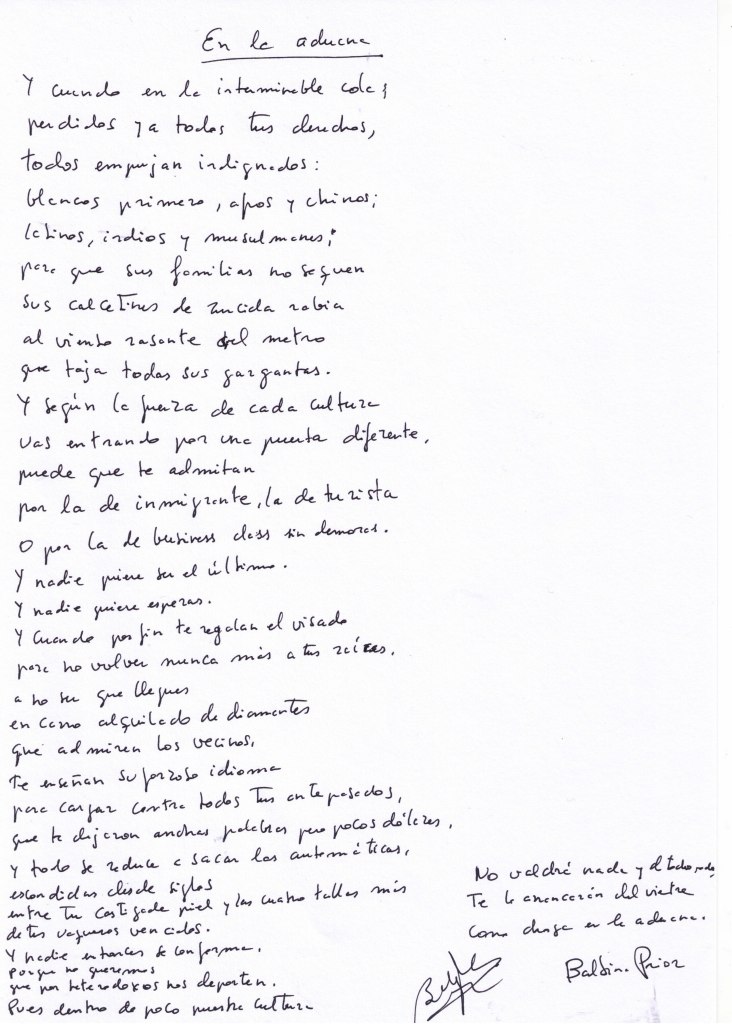 En la aduana
Y cuando en la interminable cola,
perdidos ya todos tus derechos,
todos empujan indignados:
blancos primero, afros y chinos,
latinos, indios y musulmanes,
para que sus familias no saquen
sus calcetines de zurcida rabia
al viento rasante del metro
que taja todas sus gargantas.
Y según la fuerza de cada cultura
vas entrando por una puerta diferente,
puede que te admitan
por la de inmigrante, la de turista
O por la de business class sin demoras.
Y nadie quiere ser el último.
Y nadie quiere esperar.
Y cuando por fin te regalan el visado
para no volver nunca más a tus raíces,
a no ser que llegues
en carro alquilado de diamantes
que admiren los vecinos,
te enseñan su forzoso idioma
para cargar contra todos tus antepasados,
que te dijeron anchas palabras pero pocos dólares,
y todo se reduce a sacar las automáticas,
escondidas desde siglos
entre tu castigada piel y las cuatro tallas más
de tus vaqueros vencidos.
Y nadie entonces se conforma,
porque no queremos
que por heterodoxos nos deporten.
Pues dentro de poco nuestra cultura
No valdrá nada y de todo modo,
Te la arrancarán del vientre
como droga en la aduana.
Baldina Prior